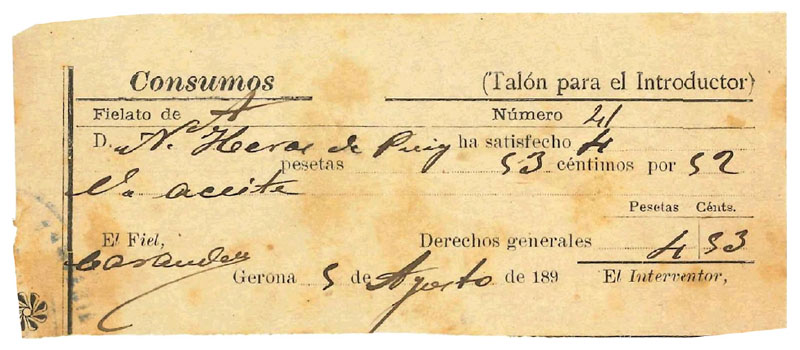 Consumos (Talón para el Introductor)
Fielato de A Número 41
D. N. Heras de Puig ha satisfecho 4
pesetas 53 céntimos por 52
aceite
Pesetas Cénts.
El Fiel, Derechos generales 4 53
Gerona 5 de Agosto de 189 El Interventor,